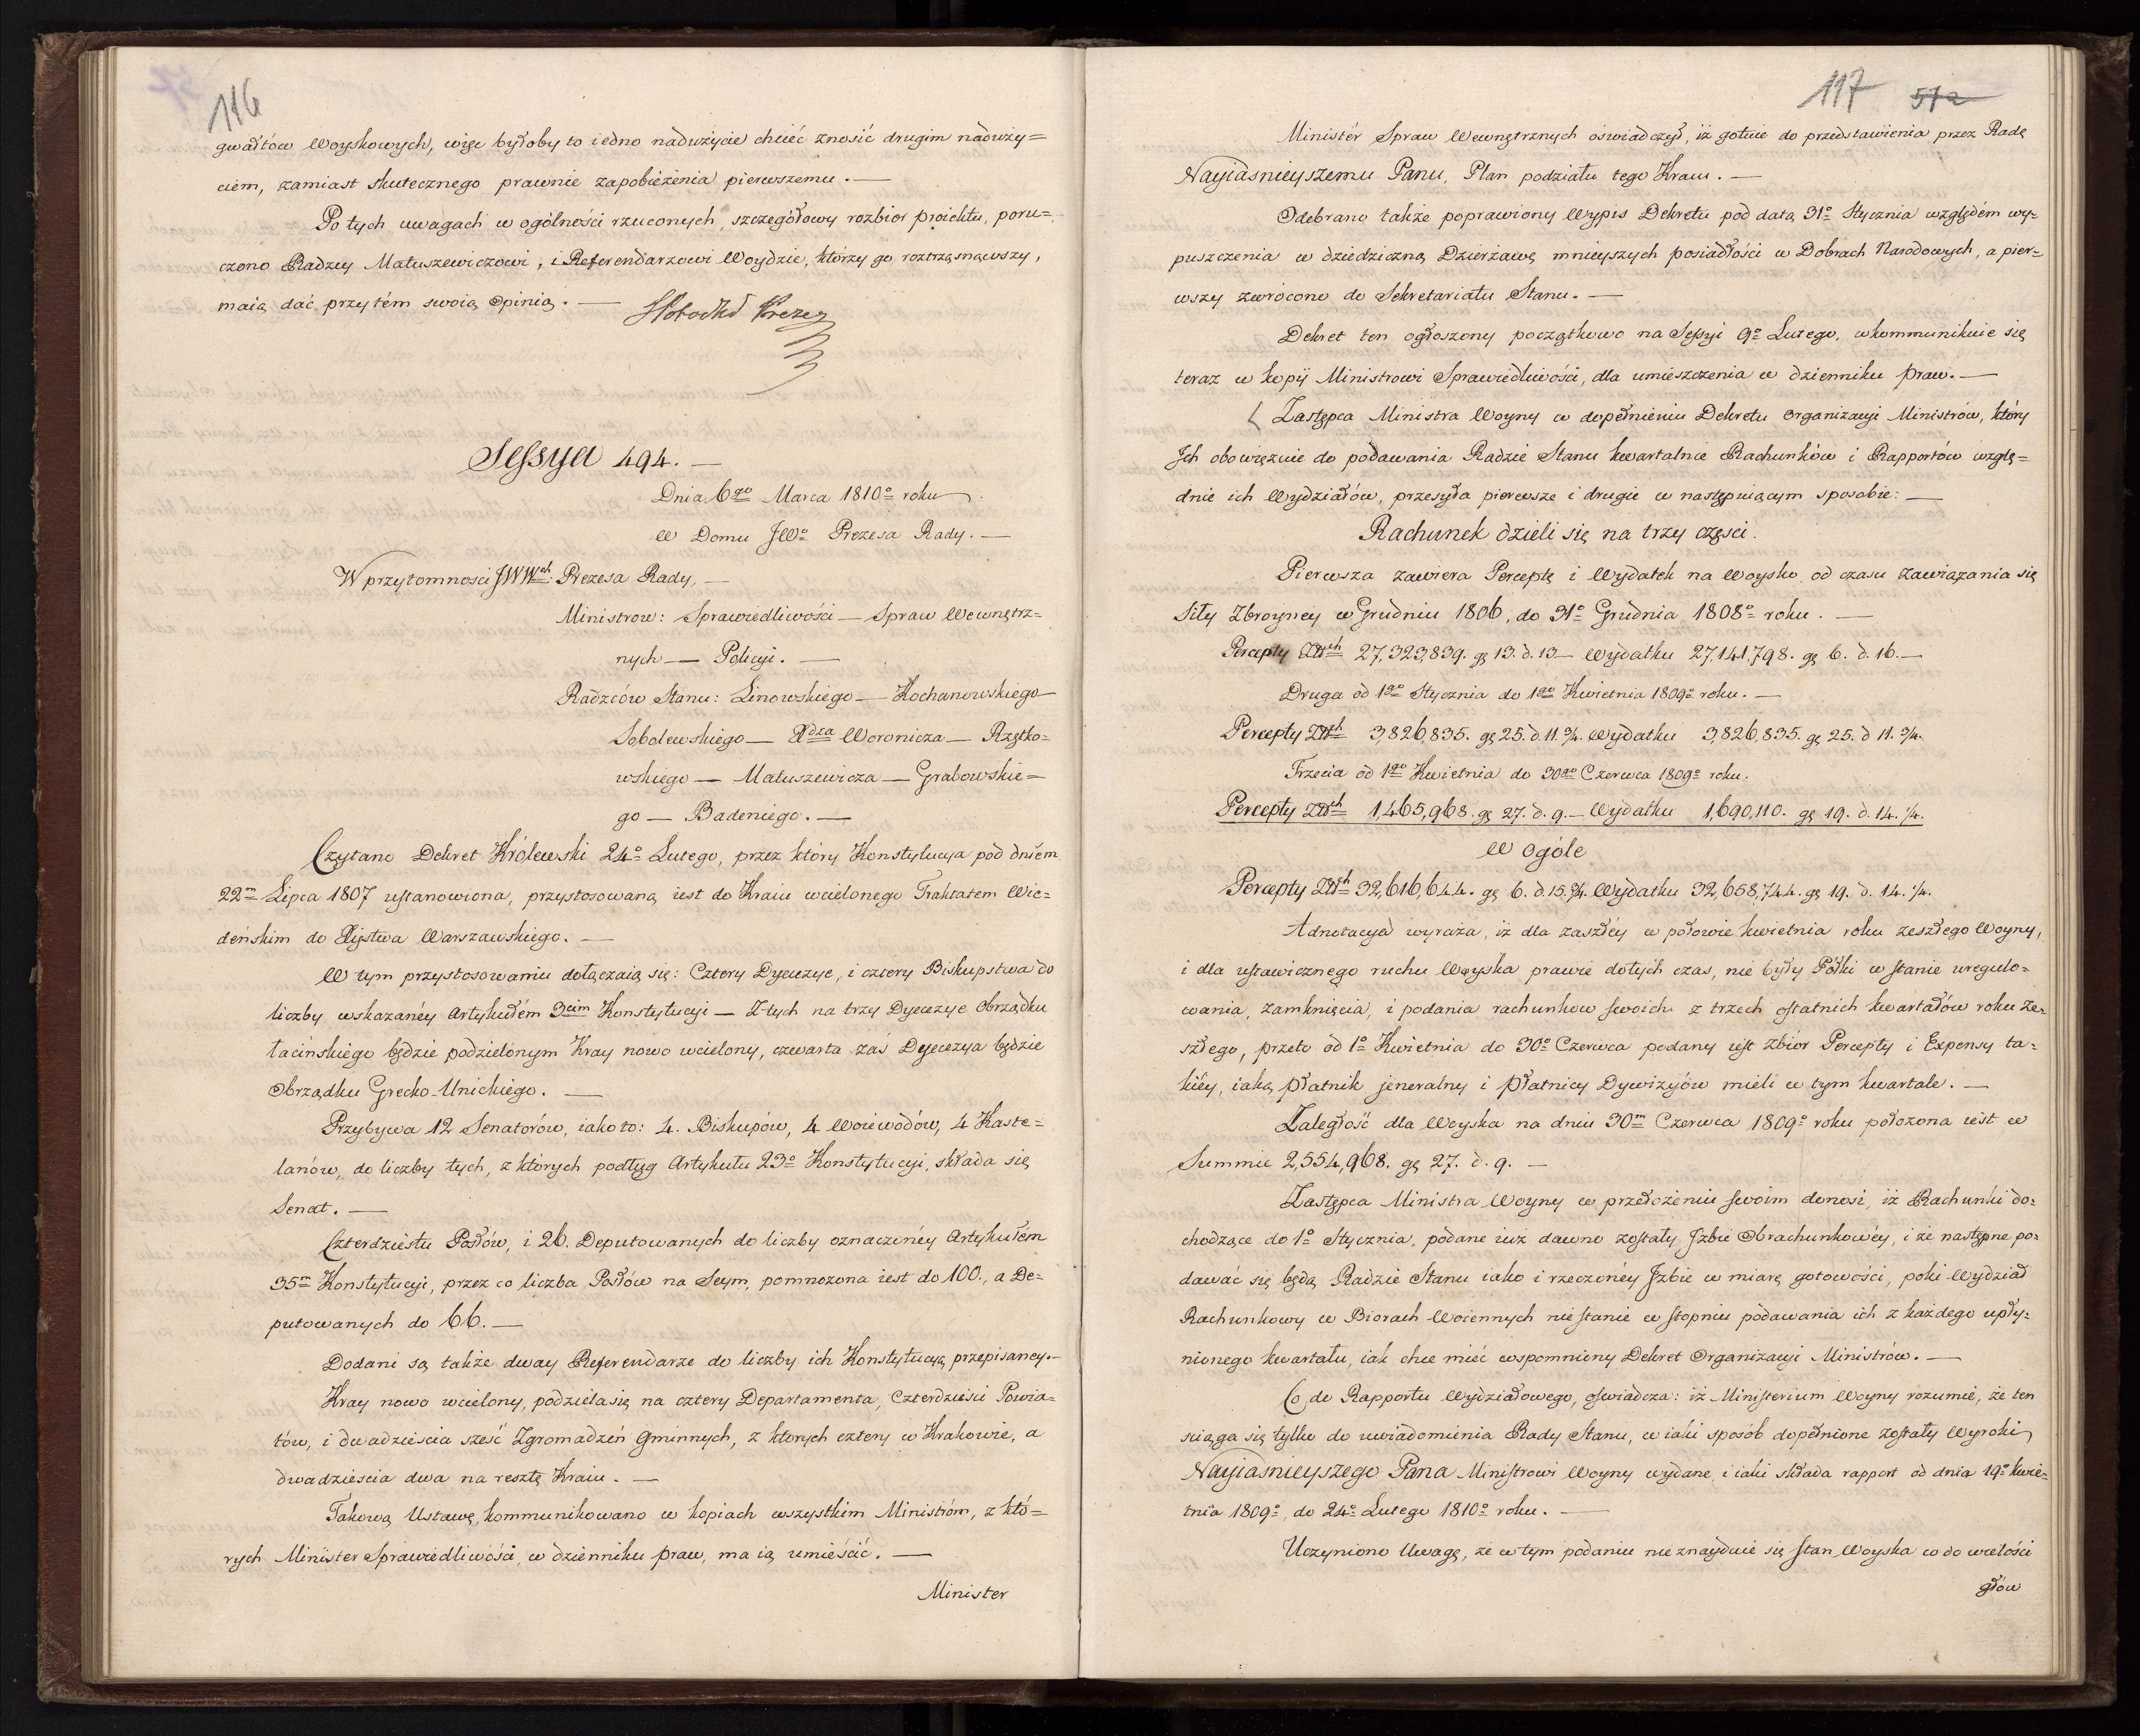 116
gwałtów Woyskowych, więc byłoby to iedno nadużycie chcieć znosić drugim naduży=
ciem, zamiast skutecznego prawnie zapobieżenia pierwszemu. —
Po tych uwagach w ogólności rzuconych, szczegółowy rozbior proiektu, poru=
czono Radzcy Matuszewiczowi, i Referendarzowi Woydzie, którzy go roztrząsnąwszy,
maią dać przytém swoią Opinią. —
Potocki Prezes
Sessya 494. —
Dnia 6go Marca 1810o roku.
W Domu JWo Prezesa Rady. —
W przytomnosci JWWch: Prezesa Rady, —
Ministrow: Sprawiedliwości — Spraw Wewnętrz=
nych — Policyi. —
Radzców Stanu: Linowskiego — Kochanowskiego —
Sobolewskiego — Xdza Woronicza — Rzętko=
wskiego — Matuszewicza — Grabowskie=
go — Badeniego. —
Czytano Dekret Królewski 24o Lutego, przez który Konstytucya pod dniem
22m Lipca 1807 ustanowiona, przystosowaną iest do Kraiu wcielonego Traktatem Wie=
deńskim do Xięstwa Warszawskiego. —
W tym przystosowaniu dołączaią się: Cztery Dyecezye, i cztery Biskupstwa do
liczby wskazanéy Artykułém 3cim Konstytucyi — Z tych na trzy Dyecezye Obrządku
łacińskiego będzie podzielonym Kray nowo wcielony, czwarta zaś Dyecezya będzie
Obrządku Grecko-Unickiego. —
Przybywa 12 Senatorów, iako to: 4. Biskupów, 4 Woiewodów, 4 Kaste=
lanów, do liczby tych, z których podług Artykułu 23o Konstytucyi, składa się
Senat. —
Czterdziestu Posłów, i 26. Deputowanych do liczby oznaczonéy Artykułem
35m Konstytucyi, przez co liczba Posłów na Seym, pomnożona iest do 100., a De=
putowanych do 66. —
Dodani są także dway Referendarze do liczby ich Konstytucyą przepisaney. —
Kray nowo wcielony, podziela się na cztery Departamenta, Czterdzieści Powia=
tów, i dwadzieścia sześć Zgromadzeń Gminnych, z których cztery w Krakowie, a
dwadzieścia dwa na resztę Kraiu. —
Takową Ustawę, kommunikowano w kopiach wszystkim Ministróm, z któ=
rych Minister Sprawiedliwości, w dzienniku praw, ma ią umieścić. —
Minister
117 57a
Ministér Spraw Wewnętrznych oświadczył, iż gotuie do przedstawienia przez Radę
Nayiasnieyszemu Panu, Plan podziału tego Kraiu. —
Odebrano także poprawiony Wypis Dekretu pod datą 31o Stycznia względém wy=
puszczenia w dziedziczną Dzierżawę mnieyszych posiadłości w Dobrach Narodowych, a pier=
wszy zwrócono do Sekretariatu Stanu. —
Dekret ten ogłoszony początkowo na Sessyi 9o Lutego, wkommunikuie się
teraz w kopii Ministrowi Sprawiedliwości, dla umieszczenia w dzienniku praw. —
Zastępca Ministra Woyny w dopełnieniu Dekretu Organizacyi Ministrów, który
Ich obowięzuie do podawania Radzie Stanu kwartalnie Rachunków i Rapportów wzglę=
dnie ich Wydziałów, przesyła pierwsze i drugie w następuiącym sposobie: —
Rachunek dzieli się na trzy części.
Pierwsza zawiera Perceptę i Wydatek na Woysko od czasu zawiązania się
Siły Zbroyney w Grudniu 1806, do 31o Grudnia 1808o roku. —
Percepty Złłch 27,323,839. gę 13. d. 13 — Wydatku 27,141,798. gę 6. d. 16. —
Druga od 1go Stycznia do 1go Kwietnia 1809o roku. —
Percepty Złłch 3,826,835. gę 25. d. 11. 3/4. Wydatku 3,826,835. gę 25. d 11. 3/4.
Trzecia od 1go Kwietnia do 30go Czerwca 1809o roku.
Percepty Złłch 1,465,968. gę 27. d. 9. — Wydatku 1,690,110. gę 19. d. 14. 1/4.
W Ogóle
Percepty Złłch 32,616,644. gę 6. d 15. 3/4. Wydatku 32,658,744. gę 19. d. 14. 1/4.
Adnotacya wyraża, iż dla zaszłéy w połowie kwietnia roku zeszłego Woyny,
i dla ustawicznego ruchu Woyska prawie dotych czas, nie były Półki w stanie uregulo=
wania, zamknięcia, i podania rachunkow swoich z trzech ostatnich kwartałów roku ze=
szłego, przeto od 1o Kwietnia do 30o Czerwca podany iest zbiór Percepty i Expensy ta=
kiéy, iaką Płatnik jeneralny i Płatnicy Dywizyów mieli w tym kwartale. —
Zaległość dla Woyska na dniu 30m Czerwca 1809o roku położona iest w
Summie 2,554,968. gę 27. d. 9. —
Zastępca Ministra Woyny w przełożeniu swoim donosi, iż Rachunki do=
chodzące do 1o Stycznia, podane iuż dawno zostały Izbie Obrachunkowéy, i że następne po=
dawać się będą Radzie Stanu iako i rzeczonéy Izbie w miarę gotowości, poki Wydział
Rachunkowy w Biorach Woiennych nie stanie w stopniu podawania ich z każdego upły=
nionego kwartału, iak chce mieć wspomniony Dekret Organizacyi Ministrów. —
Co do Rapportu Wydziałowego, oswiadcza: iż Ministerium Woyny rozumié, że ten
sciąga się tylko do uwiadomienia Rady Stanu, w iaki sposób dopełnione zostały Wyroki
Nayiasnieyszego Pana Ministrowi Woyny wydane, i iaki składa rapport od dnia 19o Kwie=
tnia 1809o, do 24o Lutego 1810o roku. —
Uczyniono Uwagę, że w tym podaniu nie znayduie się stan Woyska co do wielości
głów